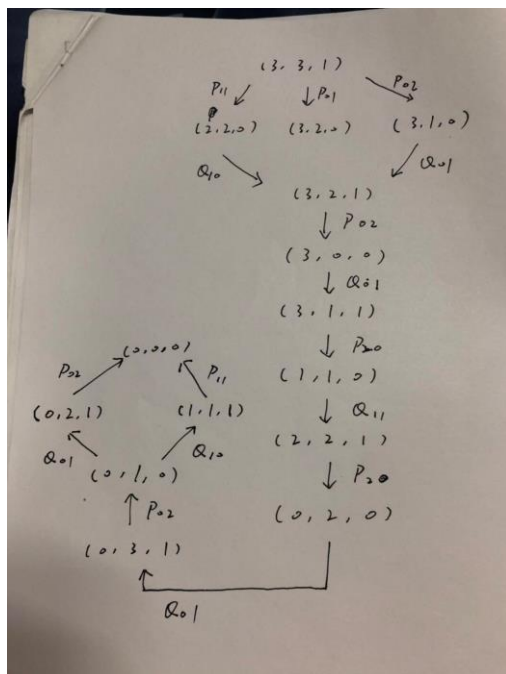 (3, 3, 1)
P11 P01 P02
(2, 2, 0) (3, 2, 0) (3, 1, 0)
Q10 Q01
(3, 2, 1)
P02
(3, 0, 0)
Q01
(3, 1, 1)
P20
(1, 1, 0)
Q11
(2, 2, 1)
P20
(0, 2, 0)
Q01
(0, 3, 1)
P02
(0, 1, 0)
Q01 Q10
(0, 2, 1) (1, 1, 1)
P02 P11
(0, 0, 0)